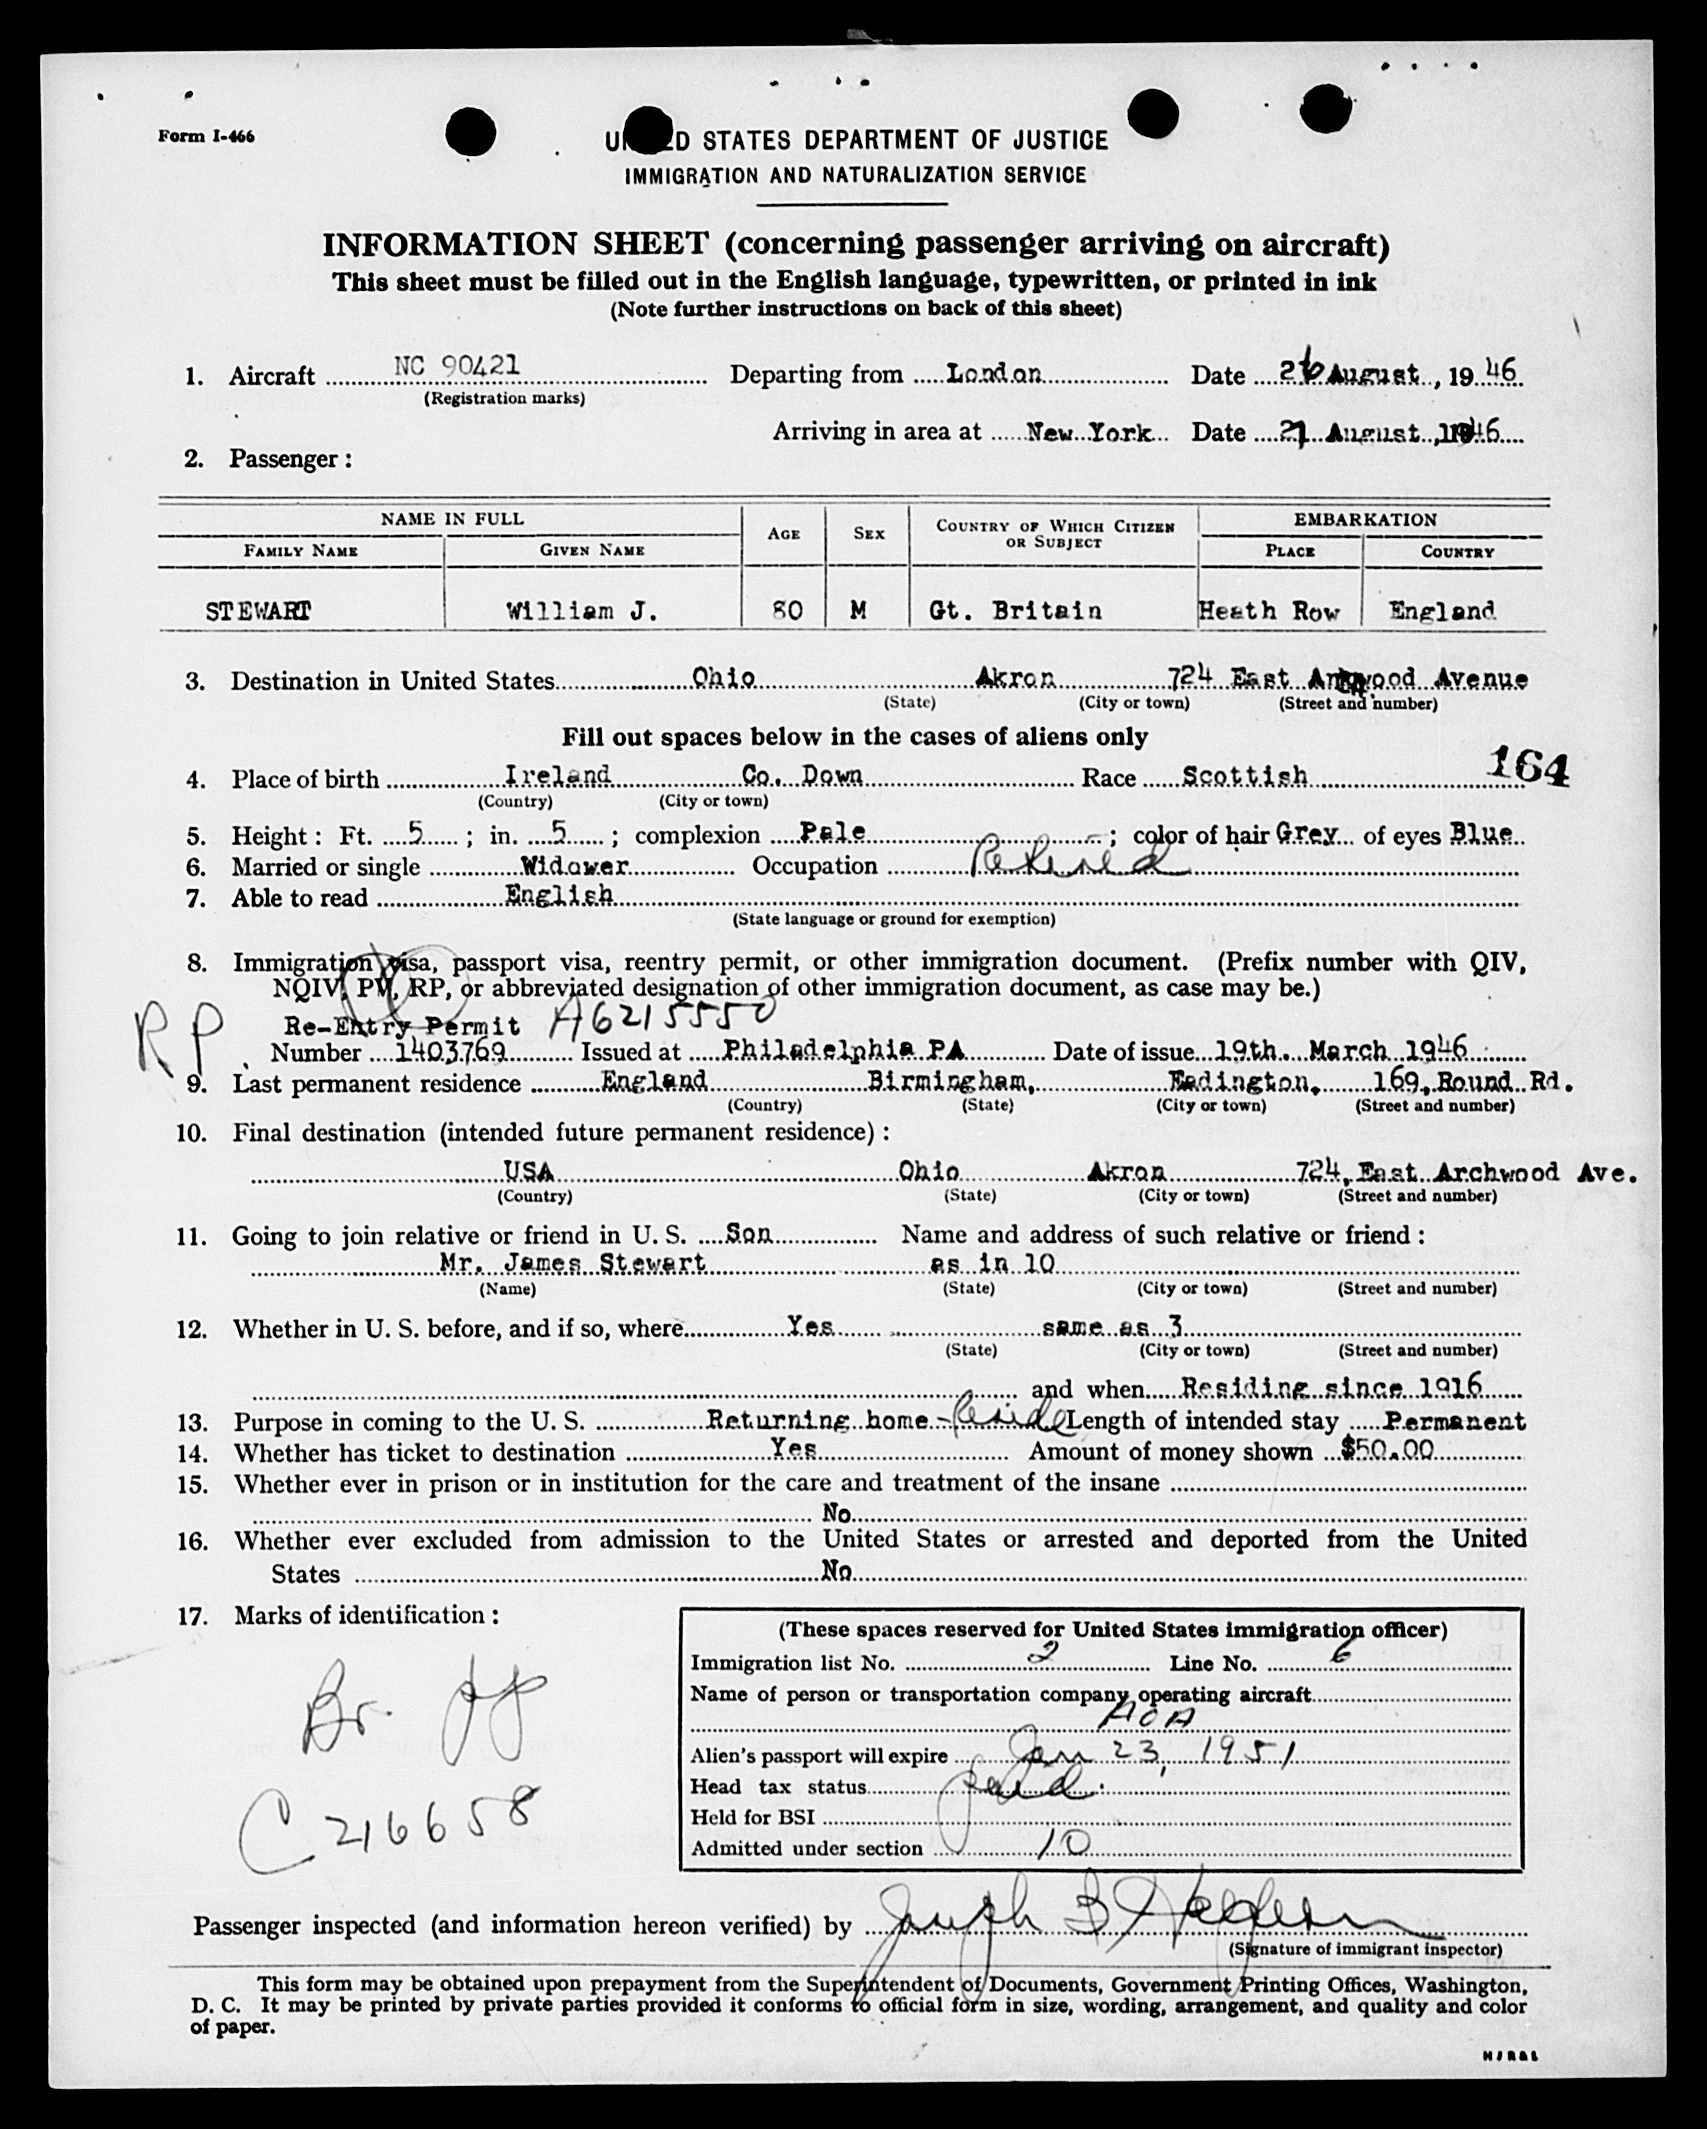 Form I-466
UNITED STATES DEPARTMENT OF JUSTICE
IMMIGRATION AND NATURALIZATION SERVICE
INFORMATION SHEET (concerning passenger arriving on aircraft)
This sheet must be filled out in the English language, typewritten, or printed in ink
(Note further instructions on back of this sheet)
1. Aircraft NC 90421 Departing from London Date 26 August, 1946
(Registration marks)
Arriving in area at New York Date 27 August, 1946
2. Passenger:
NAME IN FULL AGE SEX COUNTRY OF WHICH CITIZEN OR SUBJECT EMBARKATION
FAMILY NAME GIVEN NAME PLACE COUNTRY
STEWART William J. 80 M Gt. Britain Heath Row England
3. Destination in United States Ohio Akron 724 East Archwood Avenue
(State) (City or town) (Street and number)
Fill out spaces below in the cases of aliens only
164
4. Place of birth Ireland Co. Down Race Scottish
(Country) (City or town)
5. Height: Ft. 5; in. 5; complexion Pale; color of hair Grey of eyes Blue
6. Married or single Widower Occupation Retired
7. Able to read English
(State language or ground for exemption)
8. Immigration visa, passport visa, reentry permit, or other immigration document. (Prefix number with QIV,
NQIV, PV, RP, or abbreviated designation of other immigration document, as case may be.)
RP Re-Entry Permit A6215550
Number 1403769 Issued at Philadelphia PA Date of issue 19th. March 1946
9. Last permanent residence England Birmingham, Eadington, 169, Round Rd.
(Country) (State) (City or town) (Street and number)
10. Final destination (intended future permanent residence):
USA Ohio Akron 724, East Archwood Ave.
(Country) (State) (City or town) (Street and number)
11. Going to join relative or friend in U. S. Son Name and address of such relative or friend:
Mr. James Stewart as in 10
(Name) (State) (City or town) (Street and number)
12. Whether in U. S. before, and if so, where Yes same as 3
(State) (City or town) (Street and number)
and when Residing since 1916
13. Purpose in coming to the U. S. Returning home - Reside Length of intended stay Permanent
14. Whether has ticket to destination Yes Amount of money shown $50.00
15. Whether ever in prison or in institution for the care and treatment of the insane
No
16. Whether ever excluded from admission to the United States or arrested and deported from the United
States No
17. Marks of identification:
Br.
C 216658
(These spaces reserved for United States immigration officer)
Immigration list No. 2 Line No. 6
Name of person or transportation company operating aircraft
AOA
Alien's passport will expire Jan 23, 1951
Head tax status paid
Held for BSI
Admitted under section 10
Passenger inspected (and information hereon verified) by Joseph B
(Signature of immigrant inspector)
This form may be obtained upon prepayment from the Superintendent of Documents, Government Printing Offices, Washington,
D. C. It may be printed by private parties provided it conforms to official form in size, wording, arrangement, and quality and color
of paper.